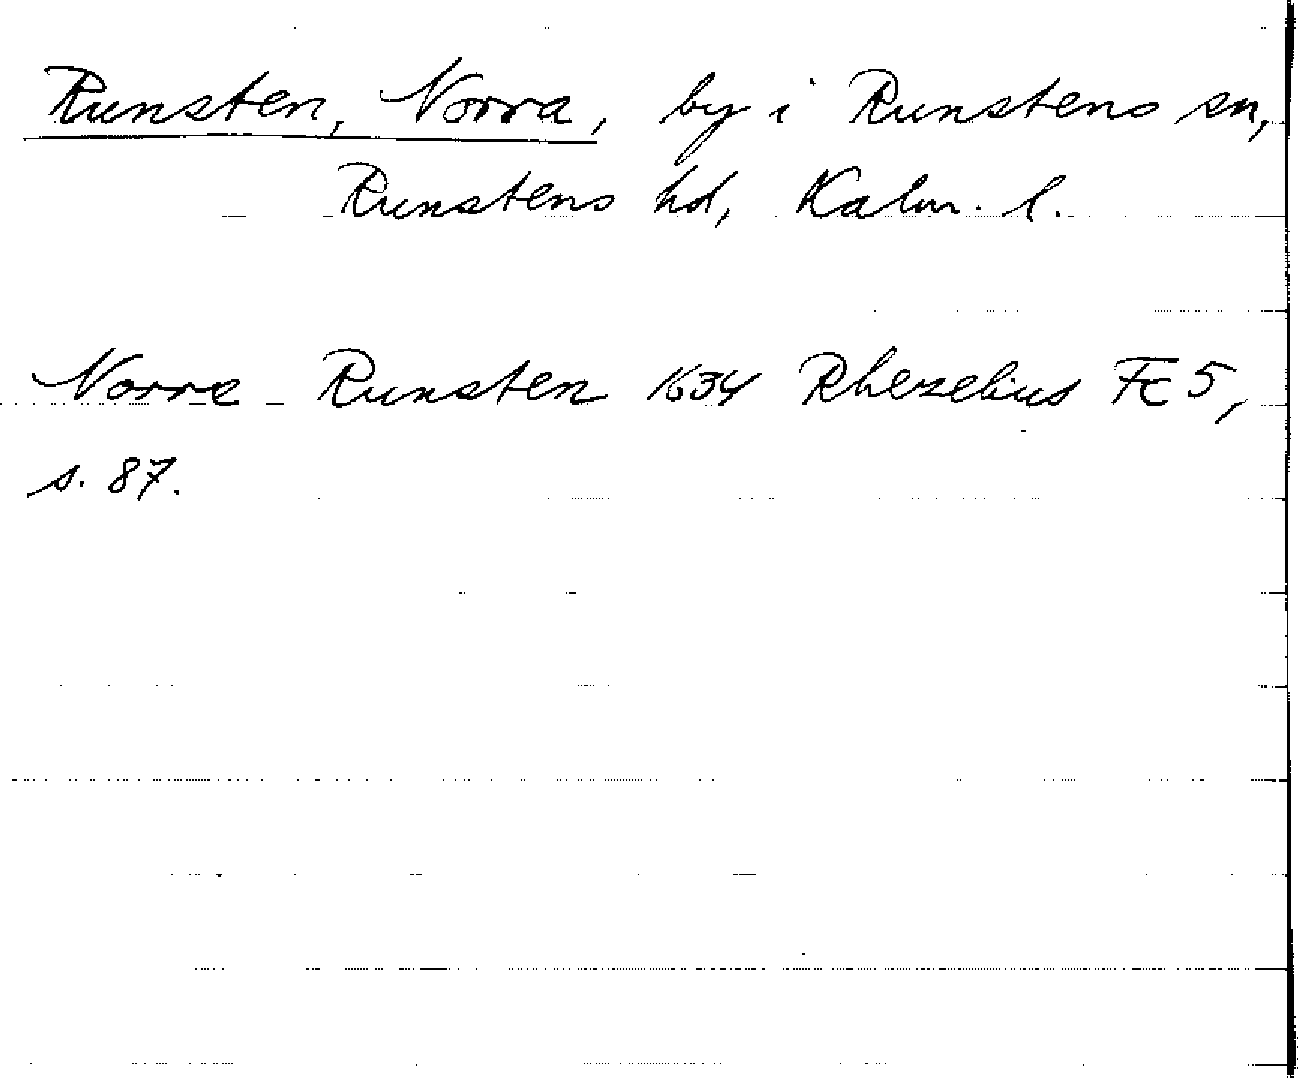 Runsten, Norra, by i Runstens sn,
Runstens hd, Kalm. l.
Norre Runsten 1634 Rhezelius Fc 5,
s. 87.